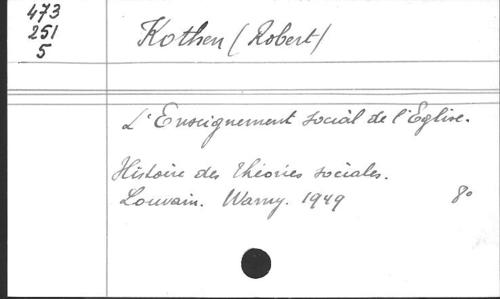 473
251
5
Kothen (Robert)
L'Enseignement social de l'Eglise.
Histoire des théories sociales.
Louvain. Warny. 1949 8°